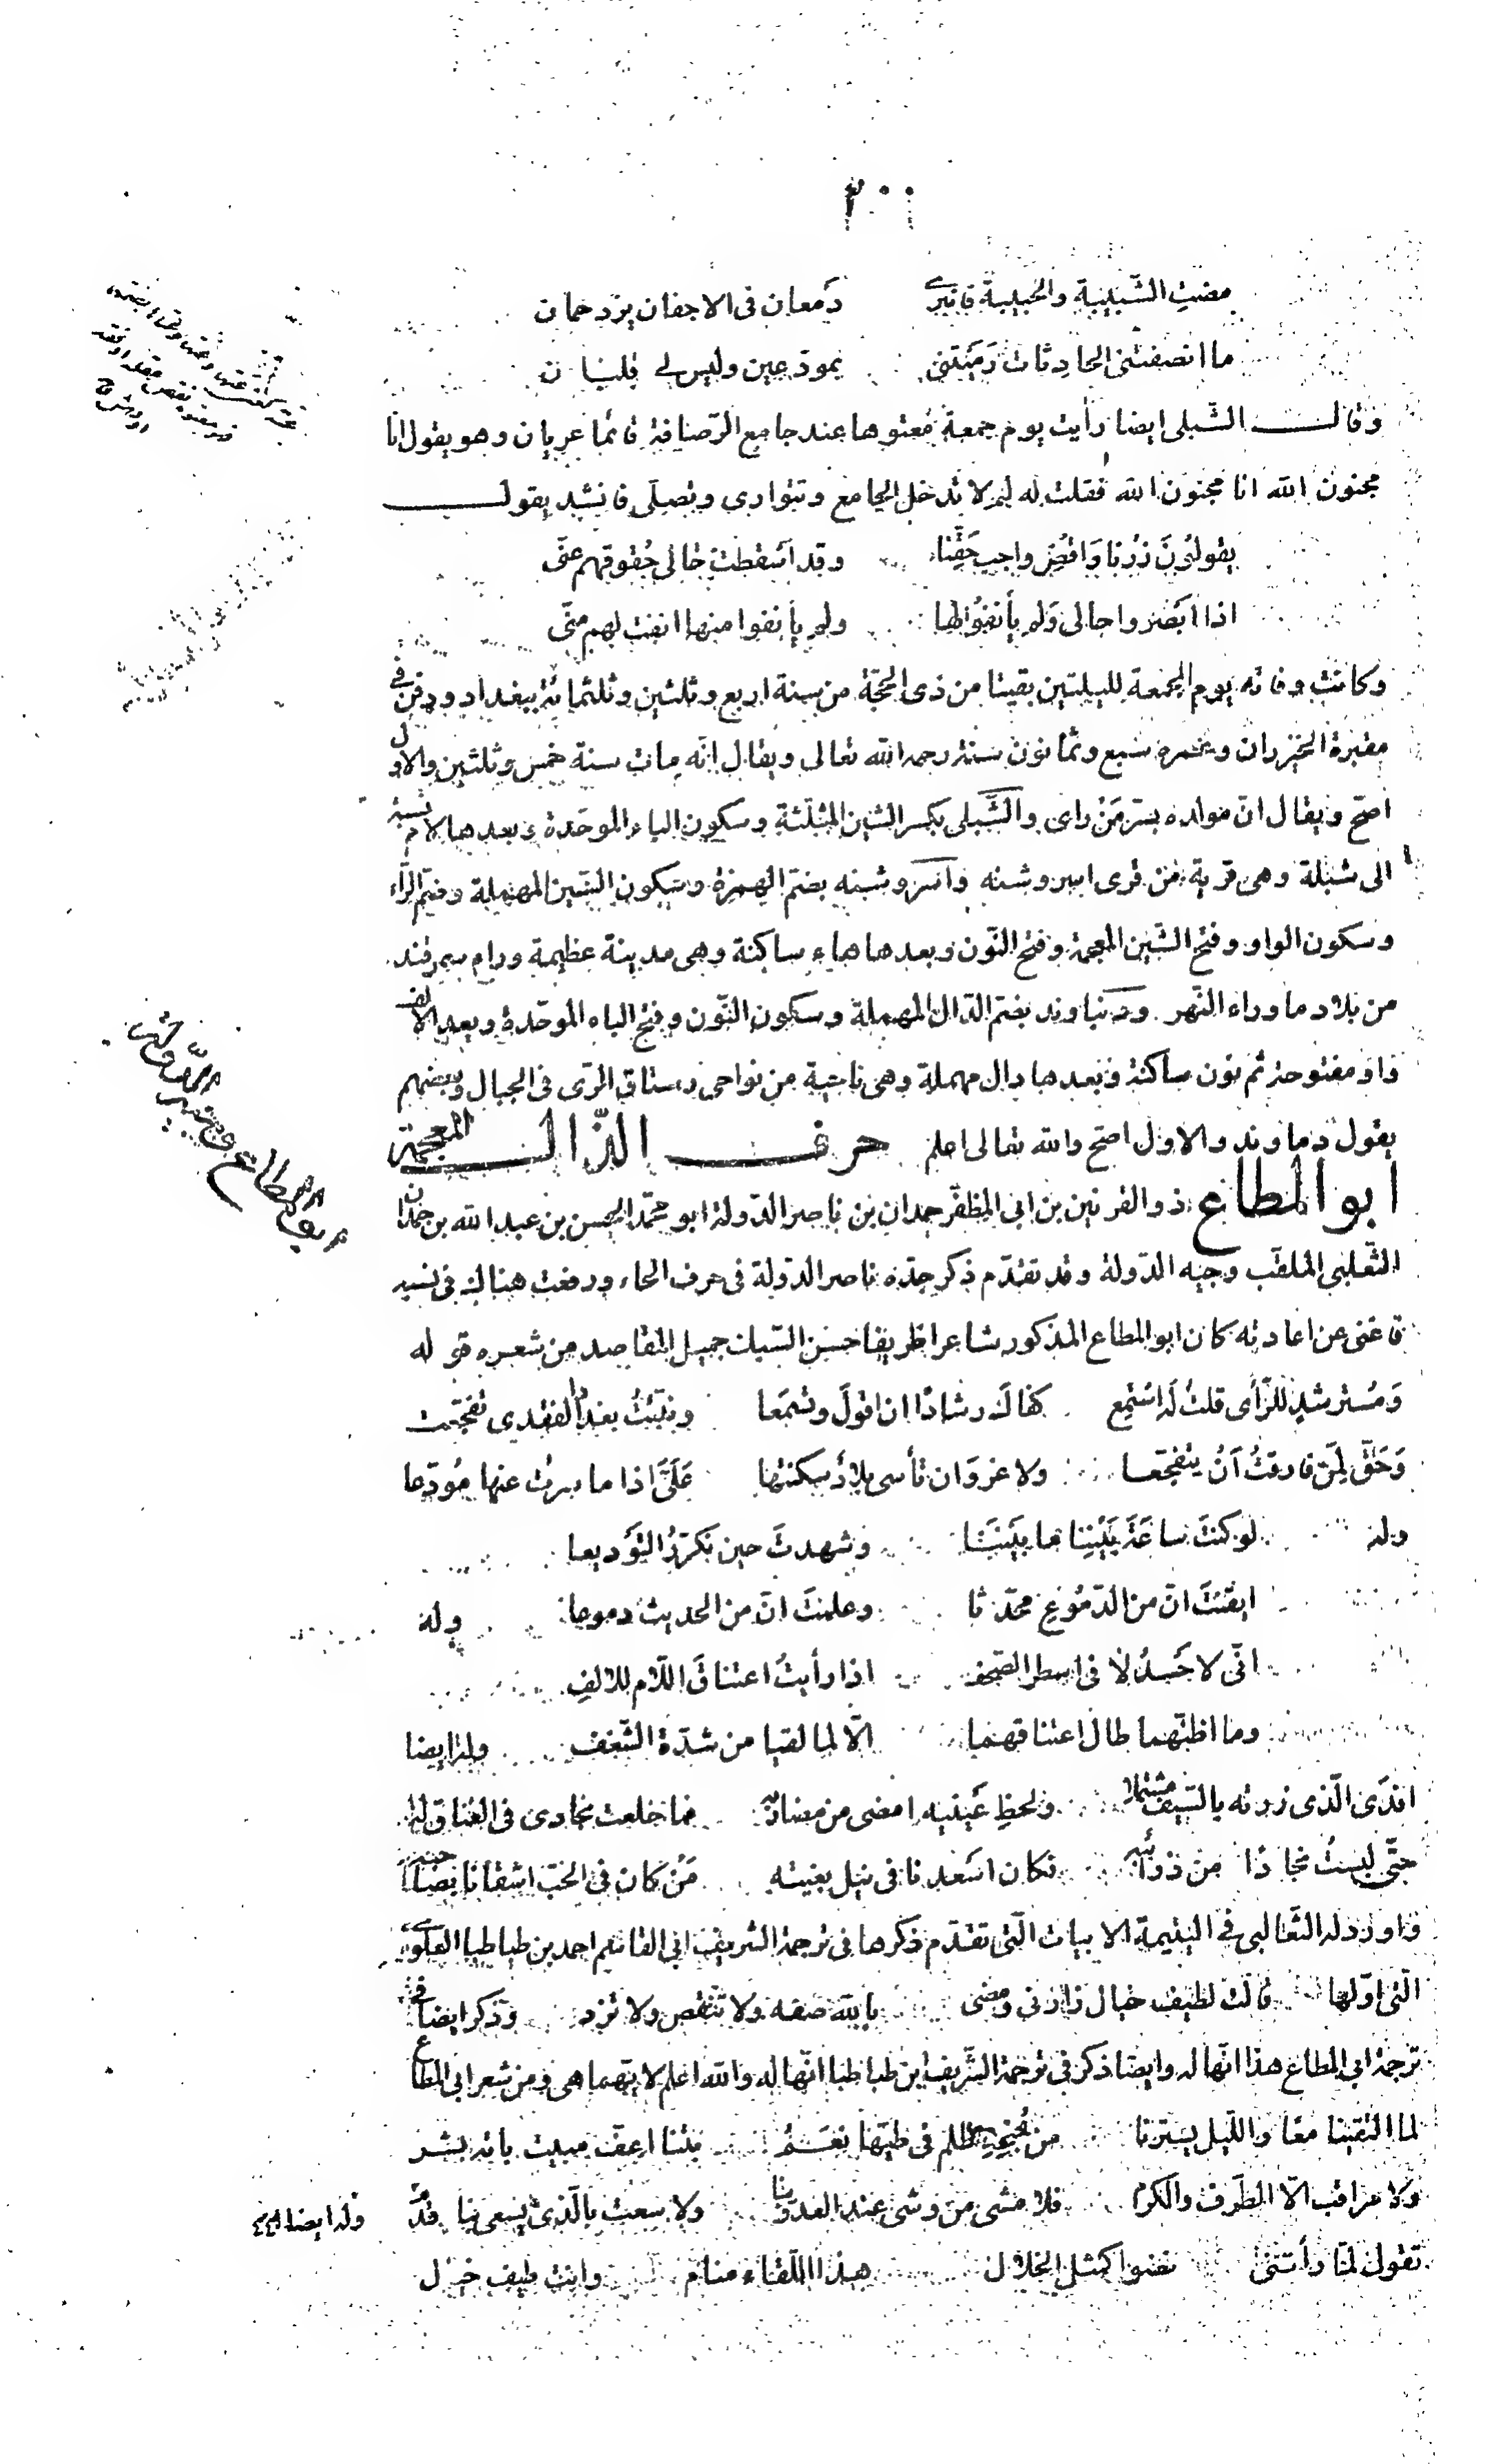 ٢٠٠
مضت الشّبيبة والحبيبة فانبرى دَمعان فى الاجفان يزدحمان
ما انصفتنى الحادثات رَمَيننى بمودعين وليس لى قلبان
وقال الشّبلى ايضا رأيت يوم جمعة مَعتوها عند جامع الرّصافة قائما عريان وهو يقول انا
مجنون الله انا مجنون الله فقلت له لم لا تدخل الجامع وتتوارى وتصلّى فانشد يقول
يقولون زُرنا وَاقضِ واجب حَقّنا وقد اَسقطت حالى حُقوقهم عنّى
اذا ابَصَروا حالى وَلم يأنفوا لها ولم يأنفوا منها انفت لهم منّى
وكانت وفاته يوم الجمعة لليلتين بقيتا من ذى الحجّة من سنة اربع وثلثين وثلثمائة ببغداد ودفن فى
مقبرة الخيزران وعمره سبع وثمانون سنة رحمه الله تعالى ويقال انّه مات سنة خمس وثلثين والاول
اصحّ ويقال انّ مولده بسرّمَنْ راى والشّبلى بكسر الشين المثلّثة وسكون الباء الموحّدة وبعدها لام نسبة
الى شبلة وهى قرية من قرى اسروشنه واسروشنه بضمّ الهمزة وسكون السّين المهملة وضمّ الرّاء
وسكون الواو وفتح الشّين المعجمة وفتح النّون وبعدها هاء ساكنة وهى مدينة عظيمة وراء سمرقند
من بلاد ما وراء النّهر ودنباوند بضمّ الدّال المهملة وسكون النّون وفتح الباء الموحّدة وبعد الالف
واو مفتوحة ثم نون ساكنة وبعدها دال مهملة وهى ناحية من نواحى رستاق الرّى فى الجبال وبعضهم
يقول دماوند والاول اصحّ والله تعالى اعلم حرف الذّال المعجمة
ابو المطاع ذو القرنين بن ابى المظفّر حمدان بن ناصر الدّولة ابو محمّد الحسن بن عبد الله بن حمدان
الثّعلبى الملقّب وجيه الدّولة وقد تقدّم ذكر جدّه ناصر الدّولة فى حرف الحاء ورفعت هناك فى نسبه
فاغنى عن اعادته كان ابو المطاع المذكور شاعرا ظريفا حسن السّبك جميل المقاصد من شعره قوله
وَمُسترشدٍ للرّأى قلتُ لَه استمِع كفاك رشادًا ان اقولَ وتسمَعا ونبّئتُ بعدا لفقدى تفجّعت
وَحَقّ لِمَن فارقتُ اَنْ يتفجّعا ولا غروَ ان تأسى بلادٌ سكنتها عَلَىَّ اذا ما سرتُ عنها مُودّعا
وله لو كنتَ ساعَةَ بَيْنِنا ما بَيْنَنَا وشهدتَ حين نكرّرُ التّوَديعا
ايقنتَ انّ من الدّمُوع محدّثا وعلمتَ انّ من الحديث دموعا وله
انّى لاحَسدُ لا فى اسطر الصّحف اذا رأيتُ اعتناقَ اللّام للالفِ
وما اظنّهما طالَ اعتناقهما الّا لما لقيا من شدّة الشّغف وله ايضا
افدَى الّذى زرته بالسّيف مشتملا ولحظِ عَينيه امضى من مضاربه فما خلعت نجادى فى العناق له
حتّى لبستُ نجادًا من ذوائبه فكان اسَعدنا فى نيل بغيته مَنْ كان فى الحبّ اشقانا بصاحبه
واورد له الثّعالبى فى اليتيمة الابيات الّتى تقدّم ذكرها فى ترجمة الشريف ابى القاسم احمد بن طباطبا العلوى
الّتى اوّلها قالت لطيف خيال زارنى ومضى بالله صفه ولا تنقص ولا تزد وذكر ايضا فى
ترجمة ابى المطاع هذا انّها له وايضا ذكر فى ترجمة الشّريف ابن طباطبا انّها له والله اعلم لايّهما هى ومن شعر ابى المطاع
لما التقينا معًا واللّيل يسترنا من جُنحه ظلم فى طيّها نعَمُ بتنا اعفّ مبيت باته بشر
ولا مراقب الّا الطّرف والكرم فلا مشى من وشى عند العدوّ بنا ولا سعت بالّذى يسعى بنا قدم وله ايضا
تقول لمّا رأتنى نضوا كمثل الخلال هذا اللّقاء منام وانت طيف خيال